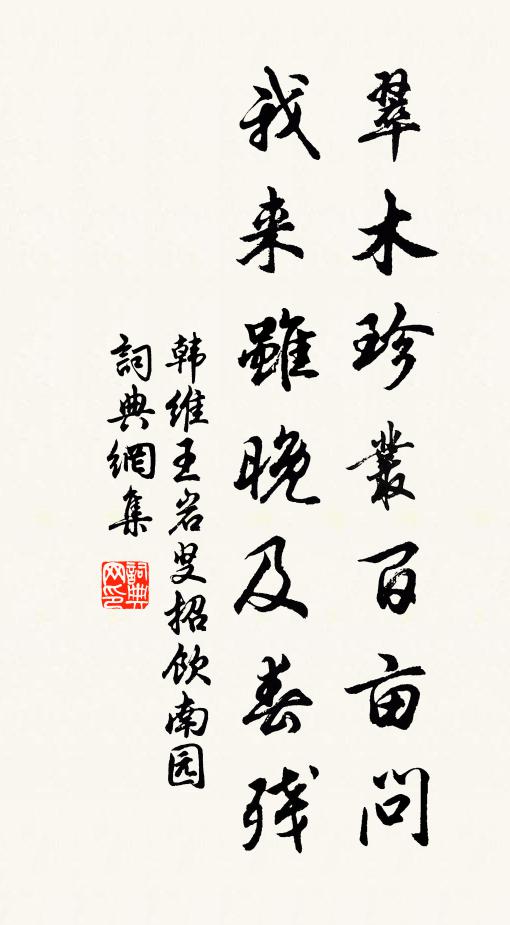 翠木珍叢百亩問
我来雖晚及春残
韩维王岩叟招饮南园
詞典網集
詞典网印